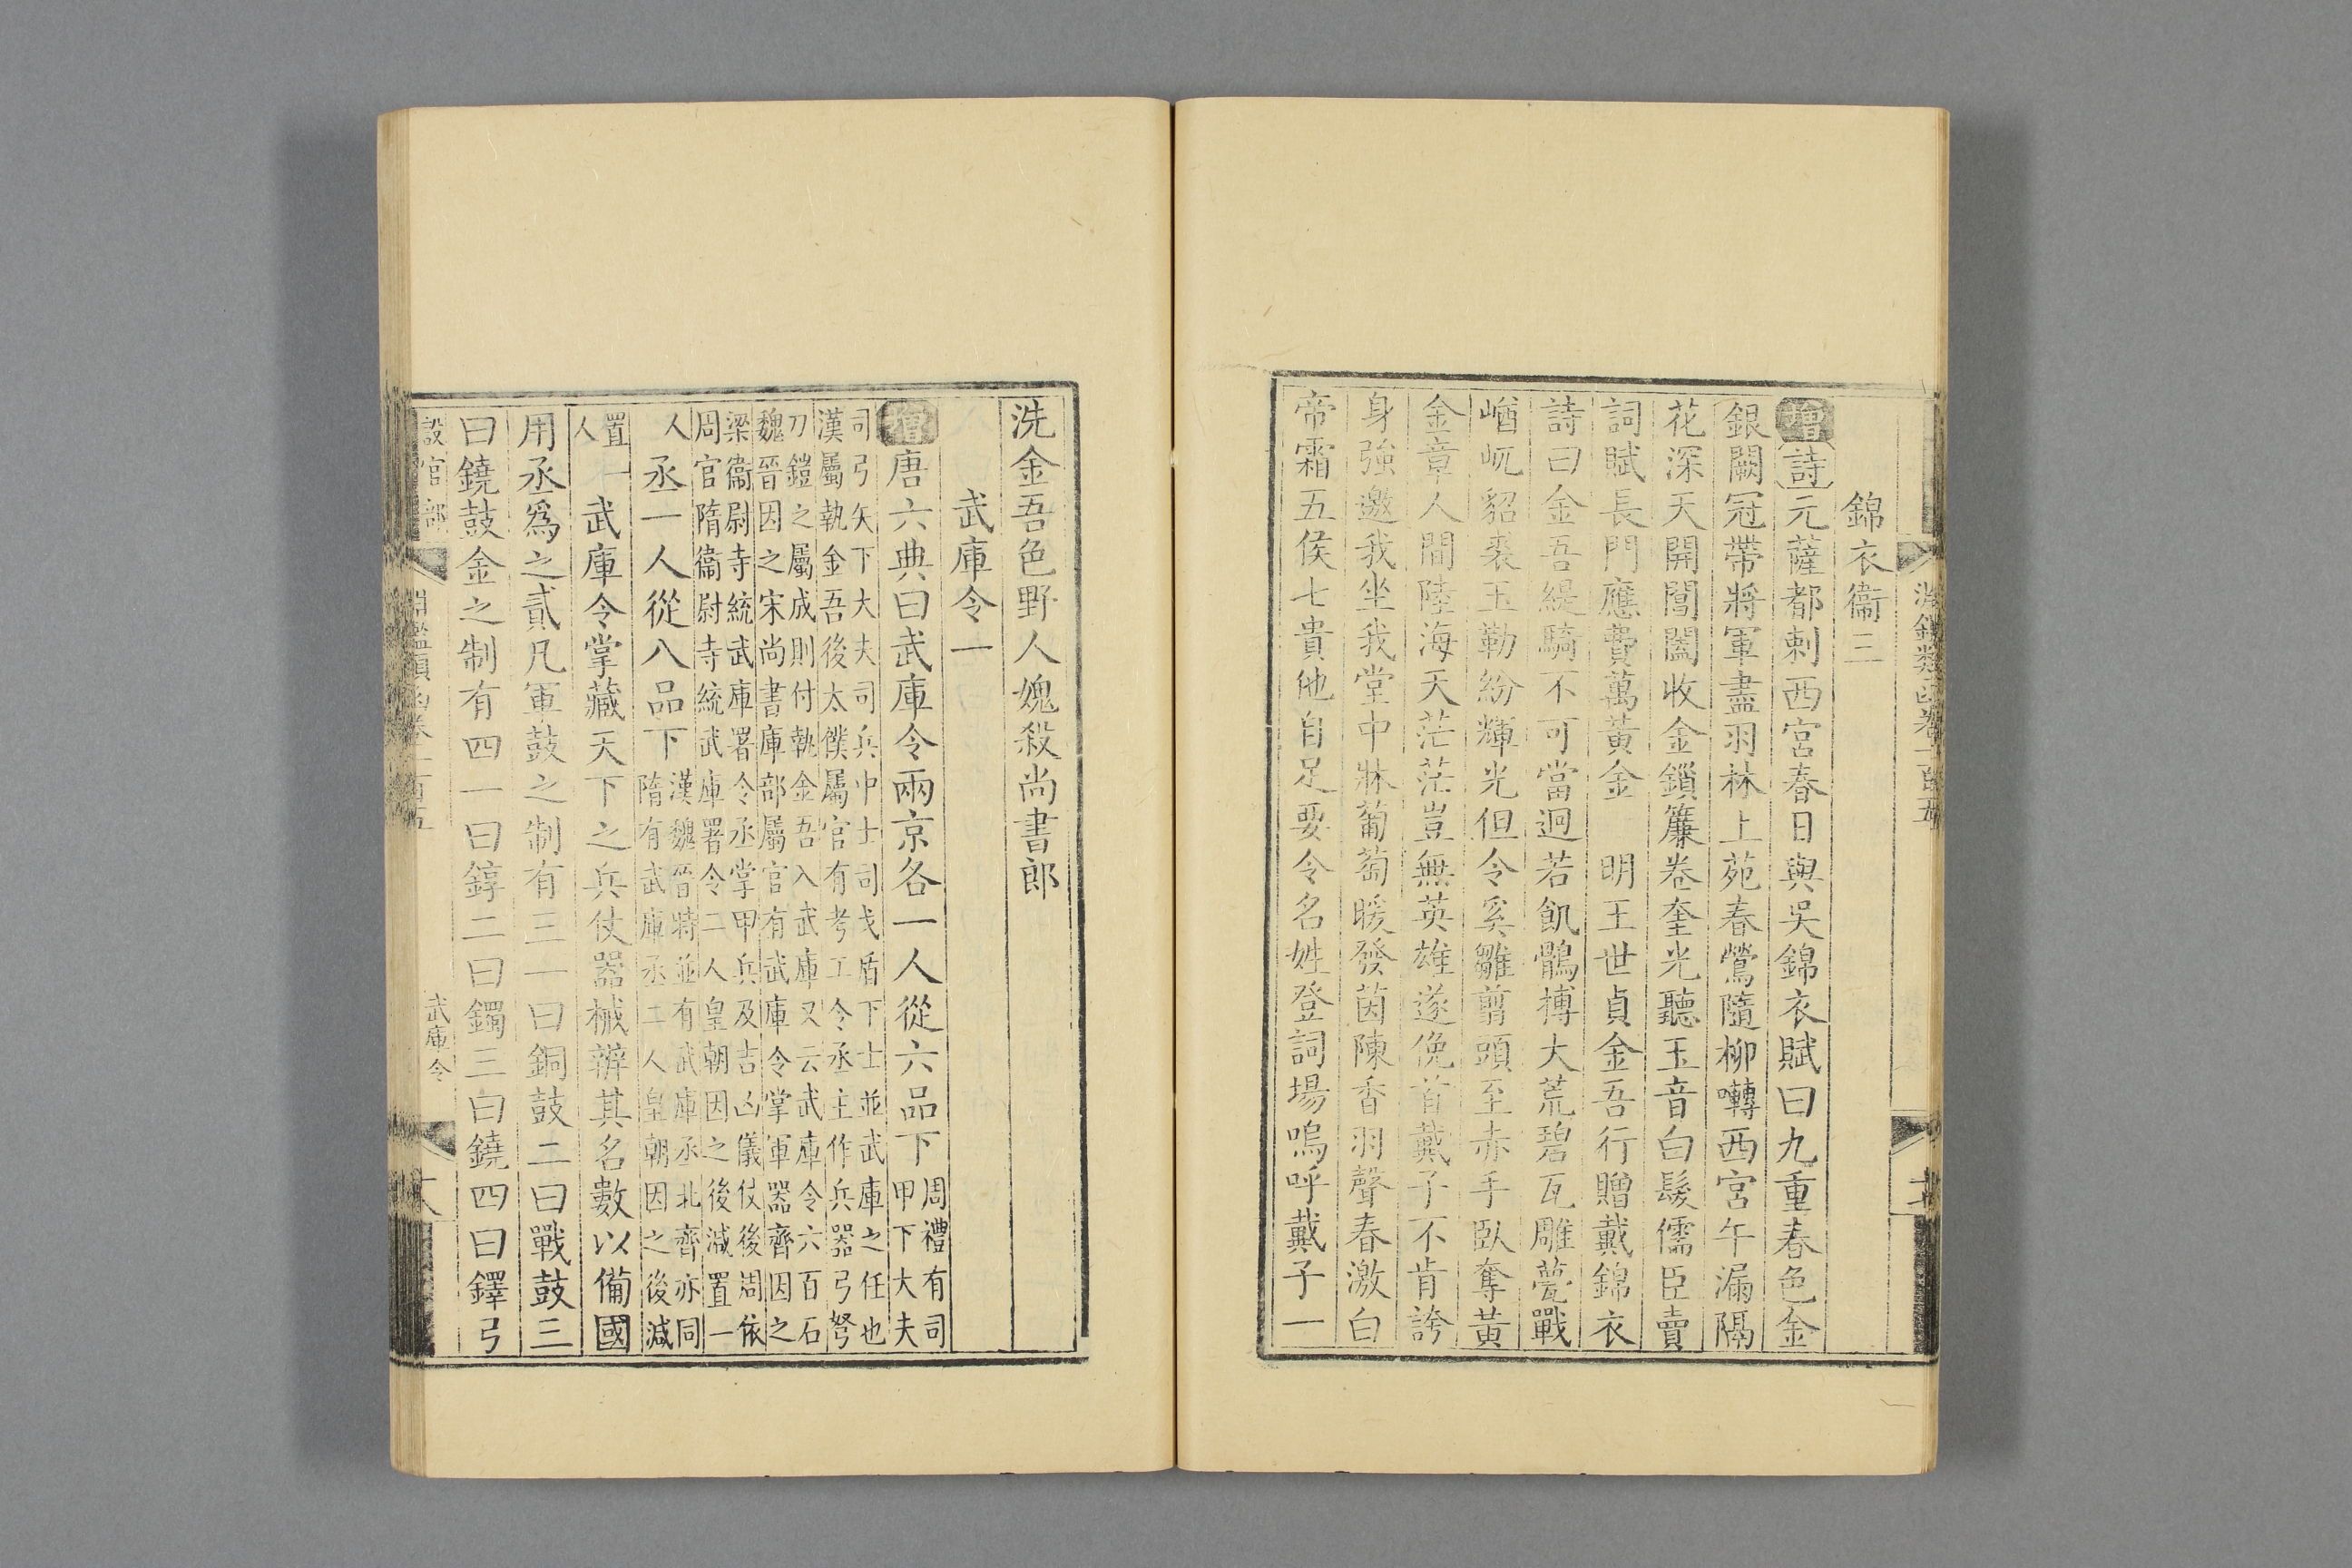 錦衣衞三
增詩元薩都剌西宮春日與吳錦衣賦曰九重春色金
銀闕冠帶將軍盡羽林上苑春鶯隨柳囀西宮午漏隔
花深天開閶闔收金鎖簾卷奎光聽玉音白髮儒臣賣
詞賦長門應費萬黃金 明王世貞金吾行贈戴錦衣
詩曰金吾緹騎不可當迥若飢鶻摶大荒碧瓦雕甍戰
崷屼貂裘玉勒紛輝光但令奚雛剪頭至赤手臥奪黃
金章人間陸海天茫茫豈無英雄遂俛首戴子不肯誇
身強邀我坐我堂中牀葡萄暖發茵陳香羽聲春激白
帝霜五侯七貴他自足要令名姓登詞場嗚呼戴子一
洗金吾色野人媿殺尚書郎
武庫令一
增唐六典曰武庫令兩京各一人從六品下周禮有司
甲下大夫
司弓矢下大夫司兵中士司戈盾下士並武庫之任也
漢屬執金吾後太僕屬官有考工令丞主作兵器弓弩
刀鎧之屬成則付執金吾入武庫又云武庫令六百石
魏晉因之宋尚書庫部屬官有武庫令掌軍器齊因之
梁衞尉寺統武庫署令丞掌甲兵及吉凶儀仗後周依
周官隋衞尉寺統武庫署令二人皇朝因之後減置一
人
丞一人從八品下漢魏晉特並有武庫丞北齊亦同
隋有武庫丞二人皇朝因之後減
置一
人
武庫令掌藏天下之兵仗器械辨其名數以備國
用丞爲之貳凡軍鼓之制有三一曰銅鼓二曰戰鼓三
曰鐃鼓金之制有四一曰錞二曰鐲三曰鐃四曰鐸弓
設官部
淵鑑類函卷一百五
武庫令